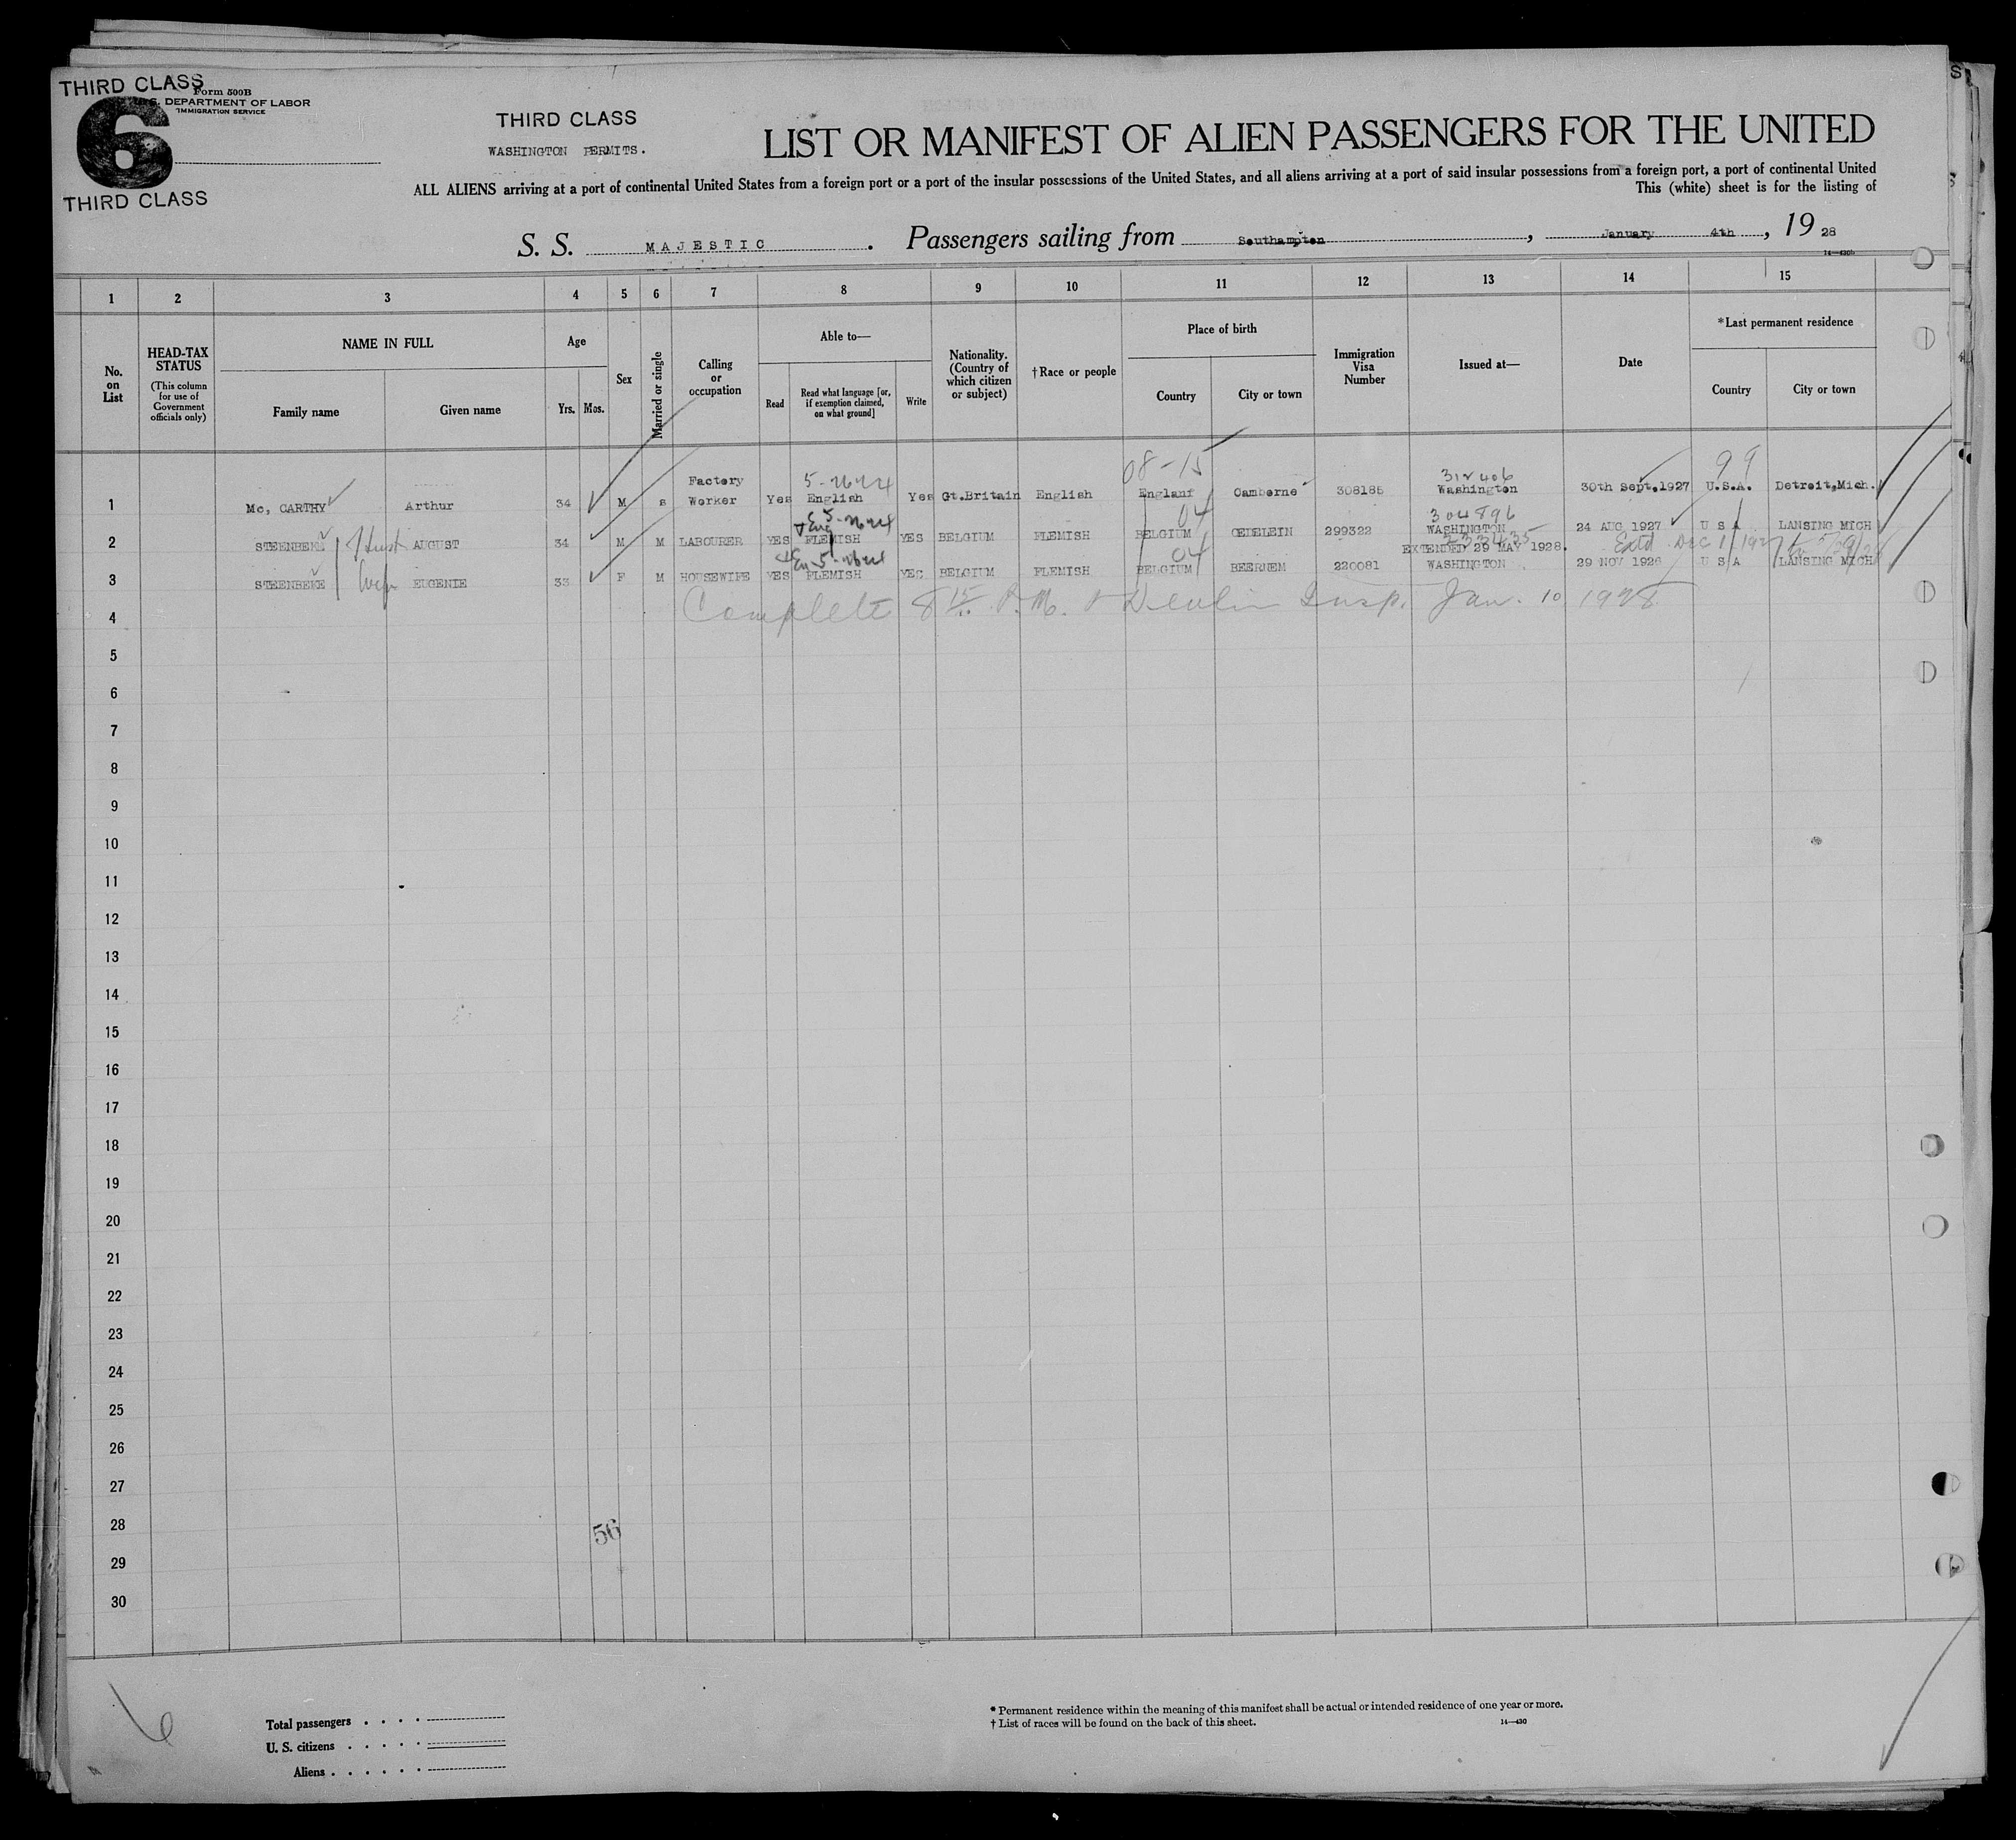 THIRD CLASS
Form 500B
U.S. DEPARTMENT OF LABOR
IMMIGRATION SERVICE
6
THIRD CLASS
THIRD CLASS
WASHINGTON PERMITS.
LIST OR MANIFEST OF ALIEN PASSENGERS FOR THE UNITED
ALL ALIENS arriving at a port of continental United States from a foreign port or a port of the insular possessions of the United States, and all aliens arriving at a port of said insular possessions from a foreign port, a port of continental United
This (white) sheet is for the listing of
S. S. MAJESTIC. Passengers sailing from Southampton, January 4th, 19 28
14—430b
1 2 3 4 5 6 7 8 9 10 11 12 13 14 15
No. on List
HEAD-TAX STATUS
(This column for use of Government officials only)
NAME IN FULL
Family name
Given name
Age
Yrs. Mos.
Sex
Married or single
Calling or occupation
Able to—
Read
Read what language [or, if exemption claimed, on what ground]
Write
Nationality. (Country of which citizen or subject)
†Race or people
Place of birth
Country
City or town
Immigration Visa Number
Issued at—
Date
*Last permanent residence
Country
City or town
08-15 312406 99
5-2624
1 Mc, CARTHY Arthur 34 M s Factory Worker Yes English Yes Gt.Britain English Englanf Camborne 308185 Washington 30th Sept.1927 U.S.A. Detroit,Mich.
04 304896
2 August 34 M M LABOURER YES FLEMISH YES BELGIUM FLEMISH BELGIUM OEDELEIN 299322 WASHINGTON 24 AUG 1927 U S A LANSING MICH
04 233435
EXTENDED 29 MAY 1928. Extd Dec 1/1927
3 Wife EUGENIE 33 F M HOUSEWIFE YES FLEMISH YES BELGIUM FLEMISH BELGIUM BEERNEM 220081 WASHINGTON 29 NOV 1926 U S A LANSING MICH
Complete 8 15 P. M. Insp. Jan. 10 1928
4
5
6
7
8
9
10
11
12
13
14
15
16
17
18
19
20
21
22
23
24
25
26
27
28
56
29
30
6
Total passengers . . . .
U. S. citizens . . . . .
Aliens . . . . . .
* Permanent residence within the meaning of this manifest shall be actual or intended residence of one year or more.
† List of races will be found on the back of this sheet.
14—430